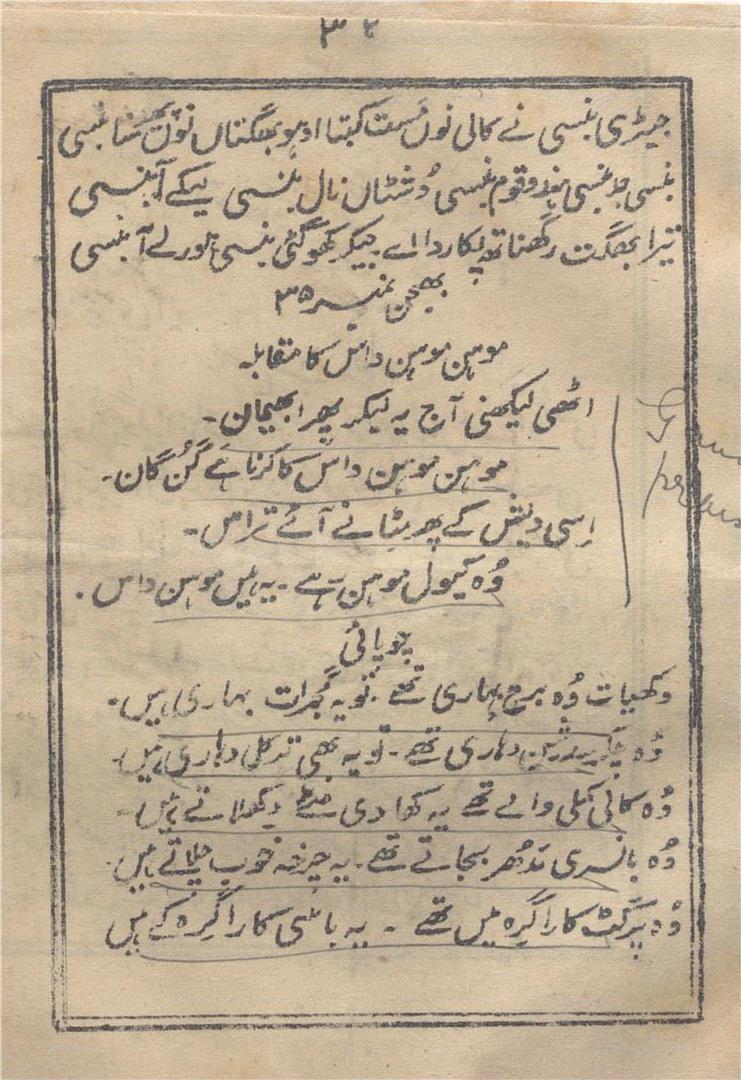 ۳۲
جیڑی بنسی نے کالی نوں مست کیتا اوہو بھگتاں نوں بنسی
بنسی جد بنسی قوم بنسی دُشٹاں نال بنسی لیکے آ بنسی
تیرا بھگت رگھناتھ پکاردا اے جیکر کھوگئی بنسی ہور لے آ بنسی
بھجن نمبر ۳۵
موہن موہن داس کا مقابلہ
اٹھی لیکھنی آج یہ لیکر پھر ابھیمان۔
موہن موہن داس کا کرنا ہے گُن گان۔
اِسی دیش کے پھر مِٹانے آئے تراس۔
وُہ کیول موہن رہے۔ یہ ہیں موہن داس۔
چوپائی
وکھیات وُہ برج بہاری تھے۔ تو یہ گجرات بہاری ہیں۔
وُہ چکر سدرشن دہاری تھے۔ تو یہ بھی تکلی دہاری ہیں۔
وُہ کالی کملی والے تھے یہ کھادی مئے دکھلاتے ہیں۔
وُہ بانسری مدُھر بجاتے تھے۔ یہ چرخہ خوب چلاتے ہیں۔
وُہ پرگٹ کاراگرہ میں تھے ۔ یہ باسی کاراگرہ کے ہیں